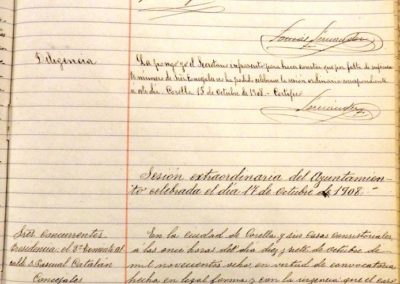 Diligencia
La pongo yo el Secretario infrascrito para hacer constar que por falta de suficiente
número de Sres. Concejales no ha podido celebrarse la sesión ordinaria correspondiente
a este día. Corella 15 de Octubre de 1908. - Certifico
Sesión extraordinaria del Ayuntamien
to celebrada el día 17 de Octubre de 1908.-
Sres. Concurrentes
Presidencia: el 2º Teniente Al
calde D. Pascual Catalán
Concejales
En la ciudad de Corella y sus Casas Consistoriales,
a las once horas del día diez y siete de Octubre de
mil novecientos ocho, en virtud de convocatoria
hecha en legal forma y con la urgencia que el caso